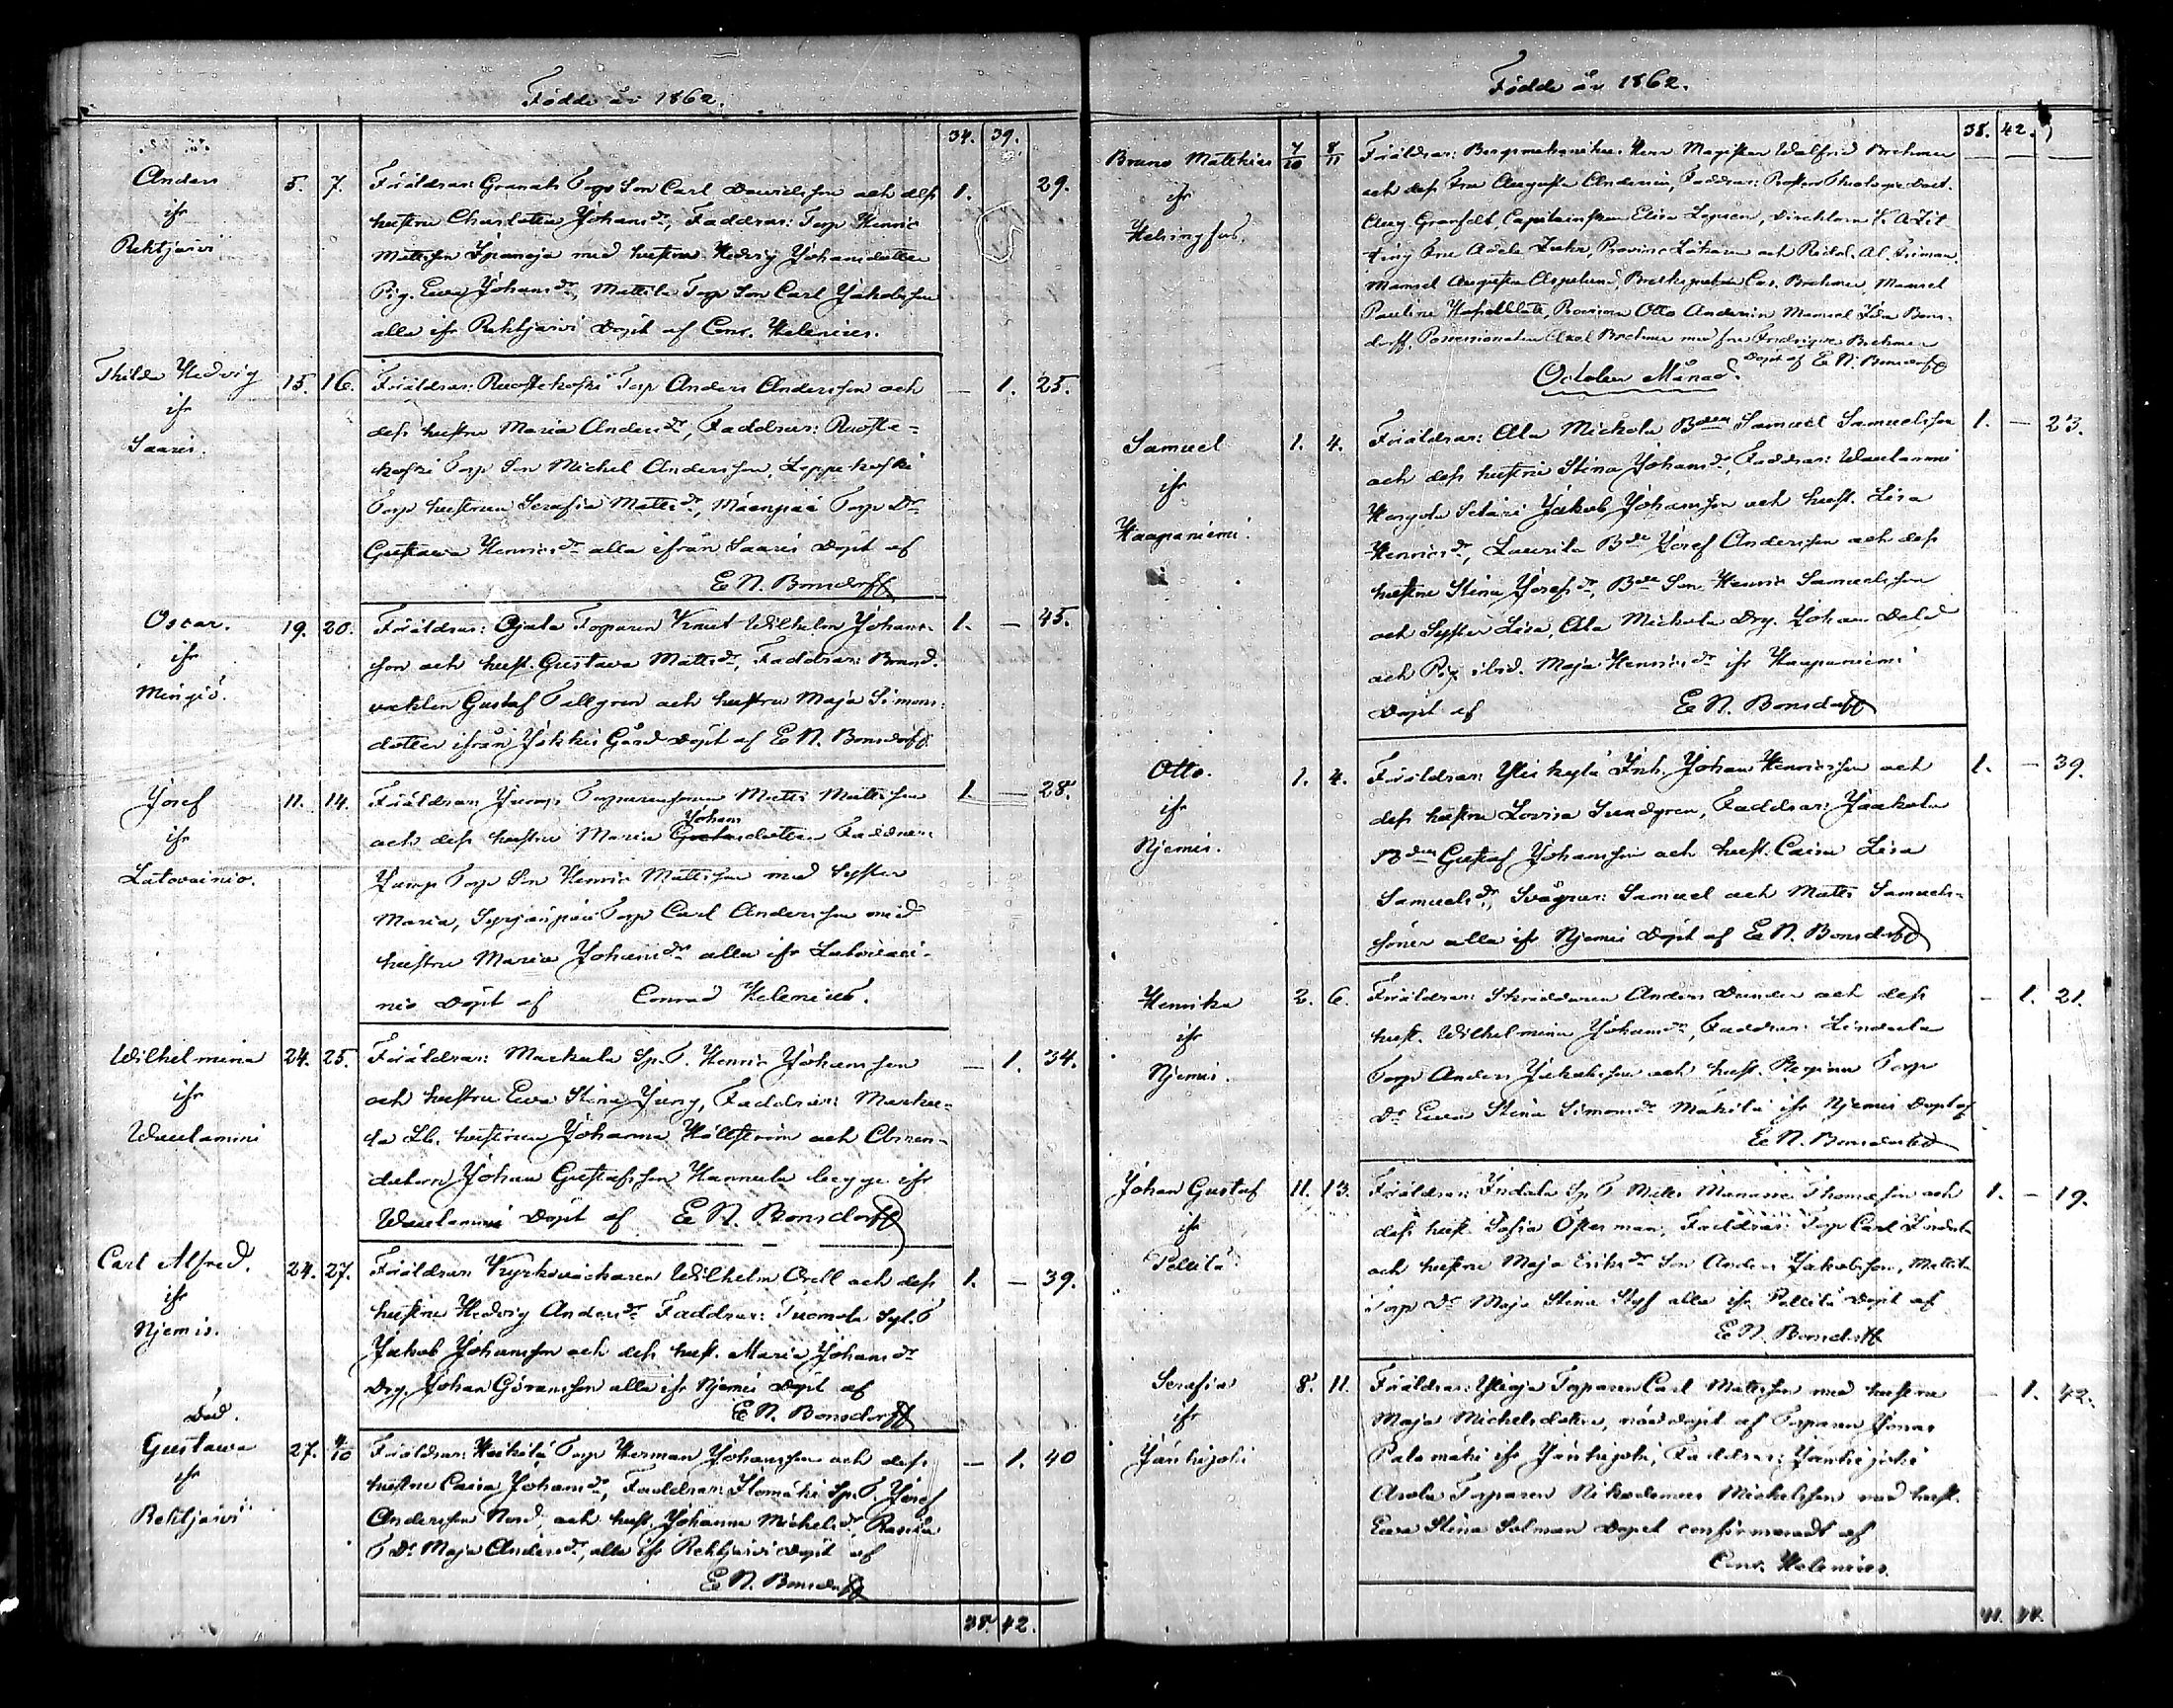 Födde år 1862.
34. 39.
Anders
ifr
Rehtjärvi
5. 7.
Föräldrar: Granals Torp Son Carl Davidsson och dess
hustru Charlotta Johansdr, Faddrar: Torp Henric
Mattsson med hustru Hedvig Johansdotter
Pig. Eva Johansdr, Mattila Torp Son Carl Jakobsson
alla ifr Rehtjärvi Döpt af Conr. Helenius.
1. 29.
Thilda Hedvig
ifr
Saaris.
15. 16.
Föräldrar: Ruostekoski Torp Anders Andersson och
dess hustru Maria Andersdr, Faddrar: Ruoste-
koski Torp Son Michel Andersson, Leppekoski
Torp hustrun Serafia Mattsdr, Mäenpää Torp Dr
Gustava Henricsdr alla ifrån Saaris Döpt af
E N. Bonsdorff
— 1. 25.
Oscar.
ifr
Mingiö.
19. 20.
Föräldrar: Ojala Torparen Knut Wilhelm Johans-
son och hust. Gustava Mattsdr, Faddrar: Brand-
vakten Gustaf Tallgren och hustru Maja Simons-
dotter ifrån Jokkis Gård Döpt af E N. Bonsdorff
1. — 45.
Josef
ifr
Latovainio.
11. 14.
Föräldrar: Jumps Torparesonen Matts Mattsson
Johans
och dess hustru Maria dotter Faddrar:
Jumps Torp Son Henric Mattsson med Syster
Maria, Syrjänpää Torp Carl Andersson med
hustru Maria Johansdr alla ifr Latovai-
nio Döpt af Conrad Helenius.
1. — 28.
Wilhelmina
ifr
Waulammi
24. 25.
Föräldrar: Markula Sp. T. Henric Johansson
och hustru Eva Stina Jung, Faddrar: Marku-
la hustrun Johanna Hällström och
Johan Gustafsson Hannula begge ifr
Waulammi Döpt af E N. Bonsdorff
— 1. 34.
Carl Alfred.
ifr
Njemis.
24. 27.
Föräldrar: Kyrkoväktaren Wilhelm Orell och dess
hustru Hedvig Andersdr Faddrar: Tuomola Syt. T
Jakob Johansson och dess hust. Maria Johansdr
Drg. Johan Göransson alla ifr Njemis Döpt af
E N. Bonsdorff
1. — 39.
Död.
Gustawa
ifr
Rehtjärvi
27. 4/10
Föräldrar: Heikilä Torp Herman Johansson och dess
hustru Caisa Johansdr, Faddrar: Isomäki Sp. T Josef
Andersson Nord, och hust. Johanna Michelsdr
T Dr Maja Andersdr, alla ifr Rehtjärvi Döpt af
E N. Bonsdorff
— 1. 40
38. 42.
Födde år 1862.
38. 42.
Bruno Matthias
ifr
Helsingfors.
7/10 8/11
Föräldrar: Herr Magister Walfrid Brehmer
och dess Fru Augusta Andersin, Faddrar: Theologie Doct.
Aug. Granfelt, Elise
Fru Adele
Mamsell Augusta Aspelund, Brehmer, Mamsell
Pauline Provisor Otto Andersin Mamsell Ida Bons-
dorff, Possessionaten Axel Brehmer med fru Fredrique Brehmer
Döpt af E N. Bonsdorff
October Månad.
Samuel
ifr
Haapaniemi.
1. 4.
Föräldrar: Ala Mickola Bden Samuel Samuelsson
och dess hustru Stina Johansdr, Faddrar: Waulammi
Jakob Johansson och hust. Lisa
Henricsdr, Laurila Bde Josef Andersson och dess
hustru Stina Josefsdr, Bde Son Henric Samuelsson
och Syster Lisa, Ala Mickola Drg. Johan Dahl
och Pig. ibid. Maja Henricsdr ifr Haapaniemi
Döpt af E N. Bonsdorff
1. — 23.
Otto.
ifr
Njemis.
1. 4.
Föräldrar: Yliskylä Inh. Johan Henricsson och
dess hustru Lovisa Sundgren, Faddrar: Jaakola
Bden Gustaf Johansson och hust. Caisa Lisa
Samuelsdr, Svågrar: Samuel och Matts Samuels-
söner alla ifr Njemis Döpt af E N. Bonsdorff
1. — 39.
Henrika
ifr
Njemis.
2. 6.
Föräldrar: Skräddaren Anders Dunder och dess
hust. Wilhelmina Johansdr, Faddrar: Lindala
Torp Anders Jakobsson och hust. Regina Torp
Dr Eva Stina Simonsdr Mäkilä ifr Njemis Döpt af
E N. Bonsdorff
— 1. 21.
Johan Gustaf
ifr
Pellilä
11. 13.
Föräldrar: Indala Sp. T Matts Thomasson och
dess hust. Sofia Österman, Faddrar: Torp Carl Indala
och hustru Maja Eriksdr Son Anders Jakobsson, Mattila
Torp Dr Maja Stina alla ifr Pellilä Döpt af
E N. Bonsdorff
1. — 19.
Serafia
ifr
Jänhijoki
8. 11.
Föräldrar: Yleoja Torparen Carl Mattsson med hustru
Maja Michelsdotter, nöddöpt af Torparen Jonas
Palomäki ifr Jänhijoki, Faddrar: Jänhijoki
Torparen Nikodemus Michelsson med hust.
Eva Stina Salman Dopet confirmeradt af
Conr. Helenius.
— 1. 42.
41. 44.